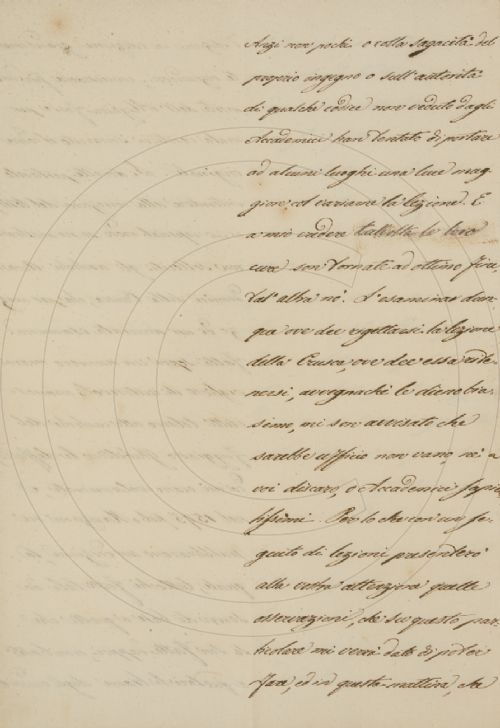 Anzi non pochi o colla sagacità del
proprio ingegno o sull'autorità
di qualche codice non veduto dagli
Accademici han tentato di portare
ad alcuni luoghi una luce mag-
giore col variarne la lezione. E
a mio credere talvolta le loro
cure son tornate ad ottimo fine
tal'altra nò. L'esaminar dun-
que ove dee rigettarsi la lezione
della Crusca, ove dee essa rite-
nersi, avvegnachè le dieno bia-
simo, mi son avvisato che
sarebbe ufficio non vano, nè a
voi discaro, o Accademici sapien-
tissimi. Per lo che con un se-
guito di lezioni presenterò
alla vostra attenzione quelle
osservazioni, che su questo par-
ticolare mi verrà dato di poter
fare, ed in questa mattina, che